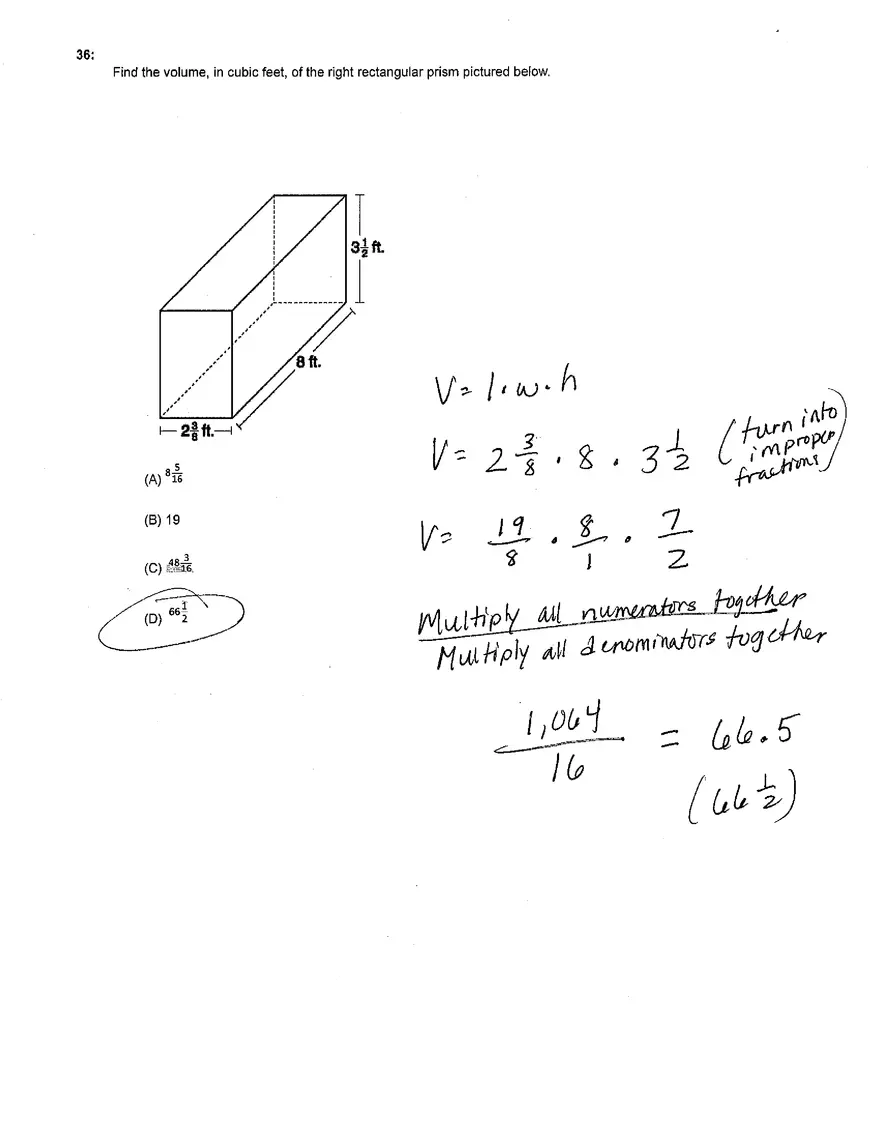 36:
Find the volume, in cubic feet, of the right rectangular prism pictured below.
3 1/2 ft.
8 ft.
2 3/8 ft.
(A) 8 5/16
(B) 19
(C) 48 3/16
(D) 66 1/2
V = l · w · h
V = 2 3/8 · 8 · 3 1/2 (turn into improper fractions)
V = 19/8 · 8/1 · 7/2
Multiply all numerators together
Multiply all denominators together
1,064/16 = 66.5
(66 1/2)